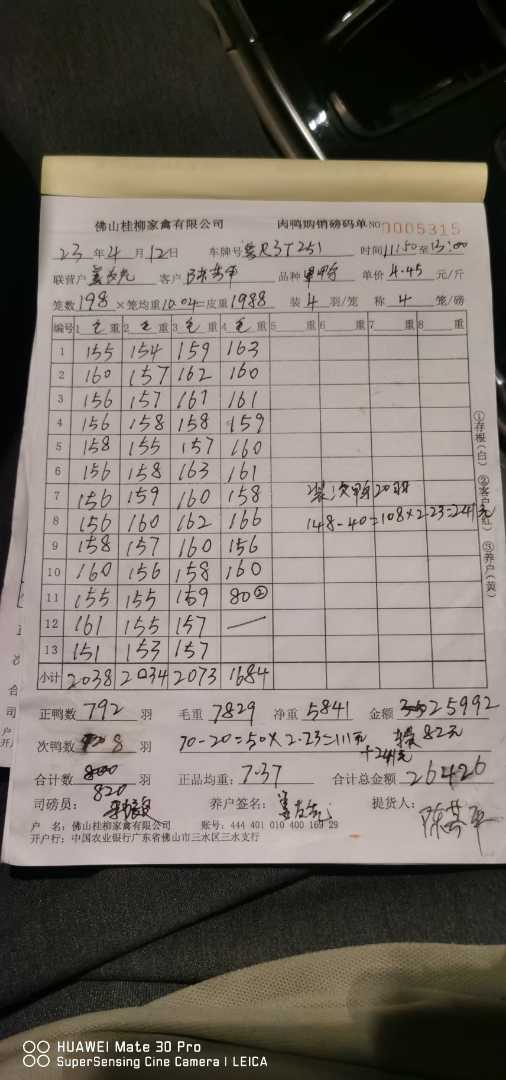 佛山桂柳家禽有限公司 肉鸭购销磅码单 NO 0005315
23 年 4 月 12 日 车牌号 粤R3T251 时间 11:50 至 13:00
联营户 客户 品种 单价 4.45 元/斤
笼数 198 ×笼均重 10.04 =皮重 1988 装 4 羽/笼 称 4 笼/磅
编号 1 毛 重 2 毛 重 3 毛 重 4 毛 重 5 重 6 重 7 重 8 重
1 155 154 159 163
2 160 157 162 160
3 156 157 167 161
4 156 158 158 159
5 158 155 157 160
6 156 158 163 161
7 156 159 160 158 装次鸭20羽
8 156 160 162 166 148-40=108×2.23=241元
9 158 157 160 156
10 160 156 158 160
11 155 155 159 80②
12 161 155 157 —
13 151 153 157
小计 2038 2034 2073 1684
①存根(白) ②客户(红) ③养户(黄)
正鸭数 792 羽 毛重 7829 净重 5841 金额 25992
次鸭数 8 羽 70-20=50×2.23=111元 82元
+241元
合计数 800 羽 正品均重: 7.37 合计总金额 26426
820
司磅员: 养户签名: 提货人:
户 名: 佛山桂柳家禽有限公司 账号: 444 401 010 400 169 29
开户行: 中国农业银行广东省佛山市三水区三水支行
HUAWEI Mate 30 Pro
SuperSensing Cine Camera | LEICA